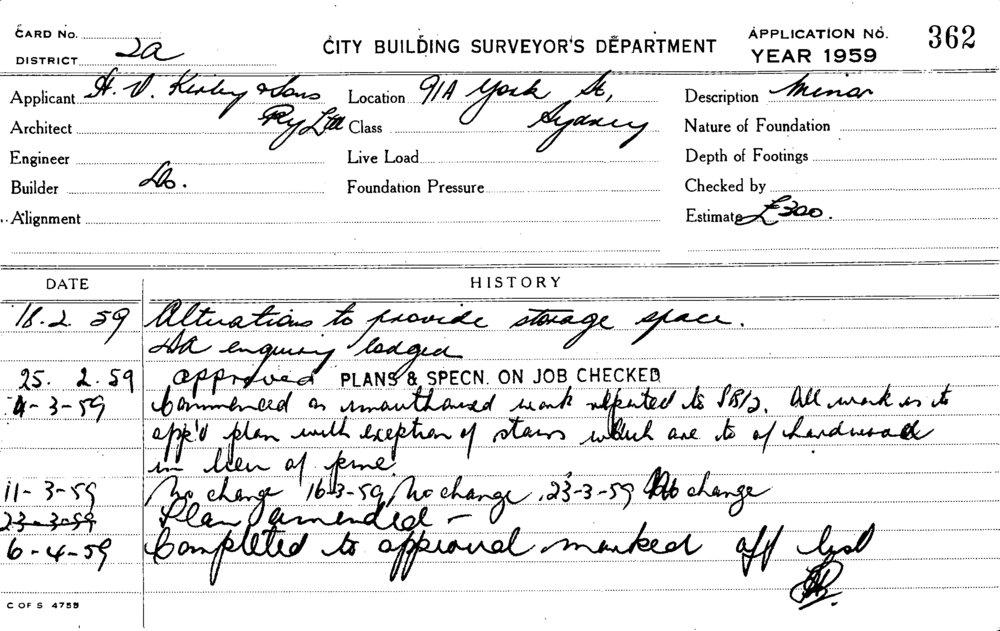 CARD NO.
DISTRICT 2a
CITY BUILDING SURVEYOR'S DEPARTMENT
APPLICATION NO. 362
YEAR 1959
Applicant H. V. Kirby & Sons Pty Ltd
Location 91A York St, Sydney
Description Minor
Architect
Class
Nature of Foundation
Engineer
Live Load
Depth of Footings
Builder Do.
Foundation Pressure
Checked by
Alignment
Estimate £300.
DATE HISTORY
18.2 59 Alterations to provide storage space.
DA enquiry lodged
25. 2.59 approved PLANS & SPECN. ON JOB CHECKED
4-3-59 Commenced as unauthorised work reported to All work is to
app'd plan with exeption of stairs which are to of hardwood
in lieu of pine.
11-3-59 No change 16-3-59, No change, 23-3-59 No change
23-3-59 Plan amended -
6-4-59 Completed to approval marked off list
C OF S 4755